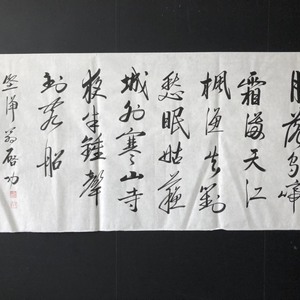 月落烏啼
霜滿天江
楓漁火對
愁眠姑蘇
城外寒山寺
夜半鐘聲
到客船
堅淨翁啟功